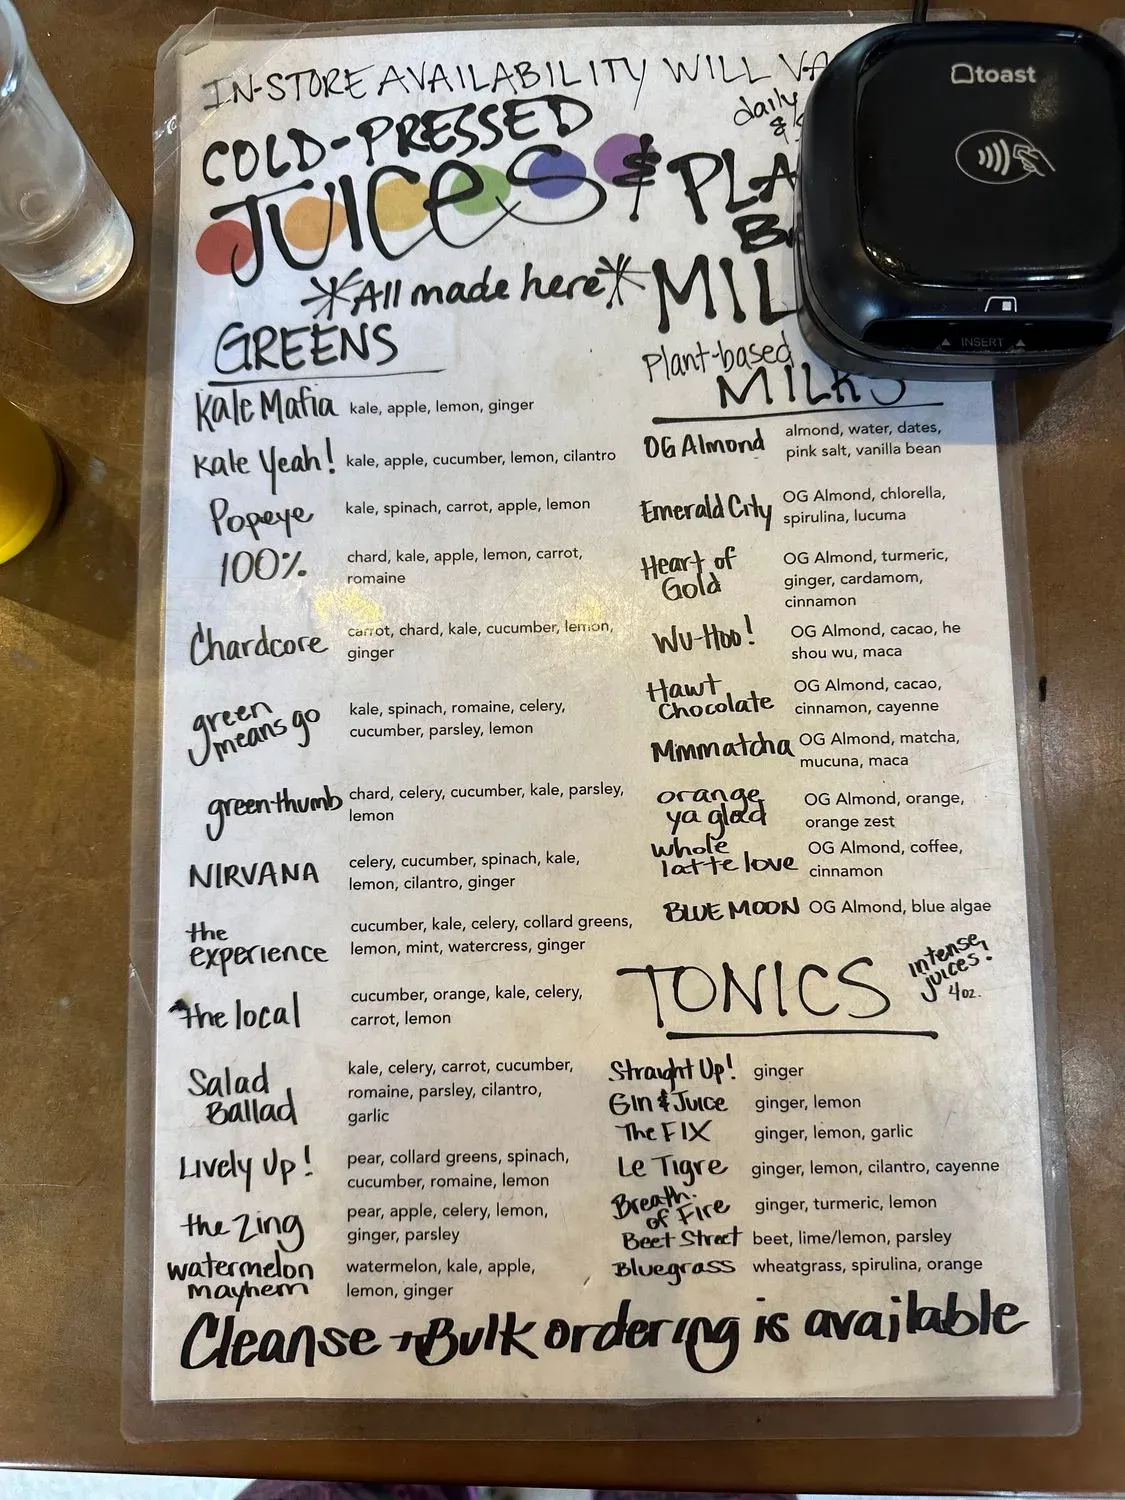 IN-STORE AVAILABILITY WILL
daily
&
COLD-PRESSED
JUICES &
MILKS
*All made here*
GREENS
Kale Mafia kale, apple, lemon, ginger
Kale Yeah! kale, apple, cucumber, lemon, cilantro
Popeye kale, spinach, carrot, apple, lemon
100% chard, kale, apple, lemon, carrot,
romaine
Chardcore carrot, chard, kale, cucumber, lemon,
ginger
green
means go kale, spinach, romaine, celery,
cucumber, parsley, lemon
green thumb chard, celery, cucumber, kale, parsley,
lemon
NIRVANA celery, cucumber, spinach, kale,
lemon, cilantro, ginger
the
experience cucumber, kale, celery, collard greens,
lemon, mint, watercress, ginger
the local cucumber, orange, kale, celery,
carrot, lemon
Salad
Ballad kale, celery, carrot, cucumber,
romaine, parsley, cilantro,
garlic
Lively Up! pear, collard greens, spinach,
cucumber, romaine, lemon
the Zing pear, apple, celery, lemon,
ginger, parsley
watermelon
mayhem watermelon, kale, apple,
lemon, ginger
Plant-based
MILKS
OG Almond almond, water, dates,
pink salt, vanilla bean
Emerald City OG Almond, chlorella,
spirulina, lucuma
Heart of
Gold OG Almond, turmeric,
ginger, cardamom,
cinnamon
Wu-Hoo! OG Almond, cacao, he
shou wu, maca
Hawt
Chocolate OG Almond, cacao,
cinnamon, cayenne
Mmmatcha OG Almond, matcha,
mucuna, maca
orange
ya glad OG Almond, orange,
orange zest
whole
latte love OG Almond, coffee,
cinnamon
BLUE MOON OG Almond, blue algae
TONICS
intense
juices!
4oz.
Straight Up! ginger
Gin & Juice ginger, lemon
The FIX ginger, lemon, garlic
Le Tigre ginger, lemon, cilantro, cayenne
Breath
of Fire ginger, turmeric, lemon
Beet Street beet, lime/lemon, parsley
Bluegrass wheatgrass, spirulina, orange
Cleanse + Bulk ordering is available
toast
INSERT